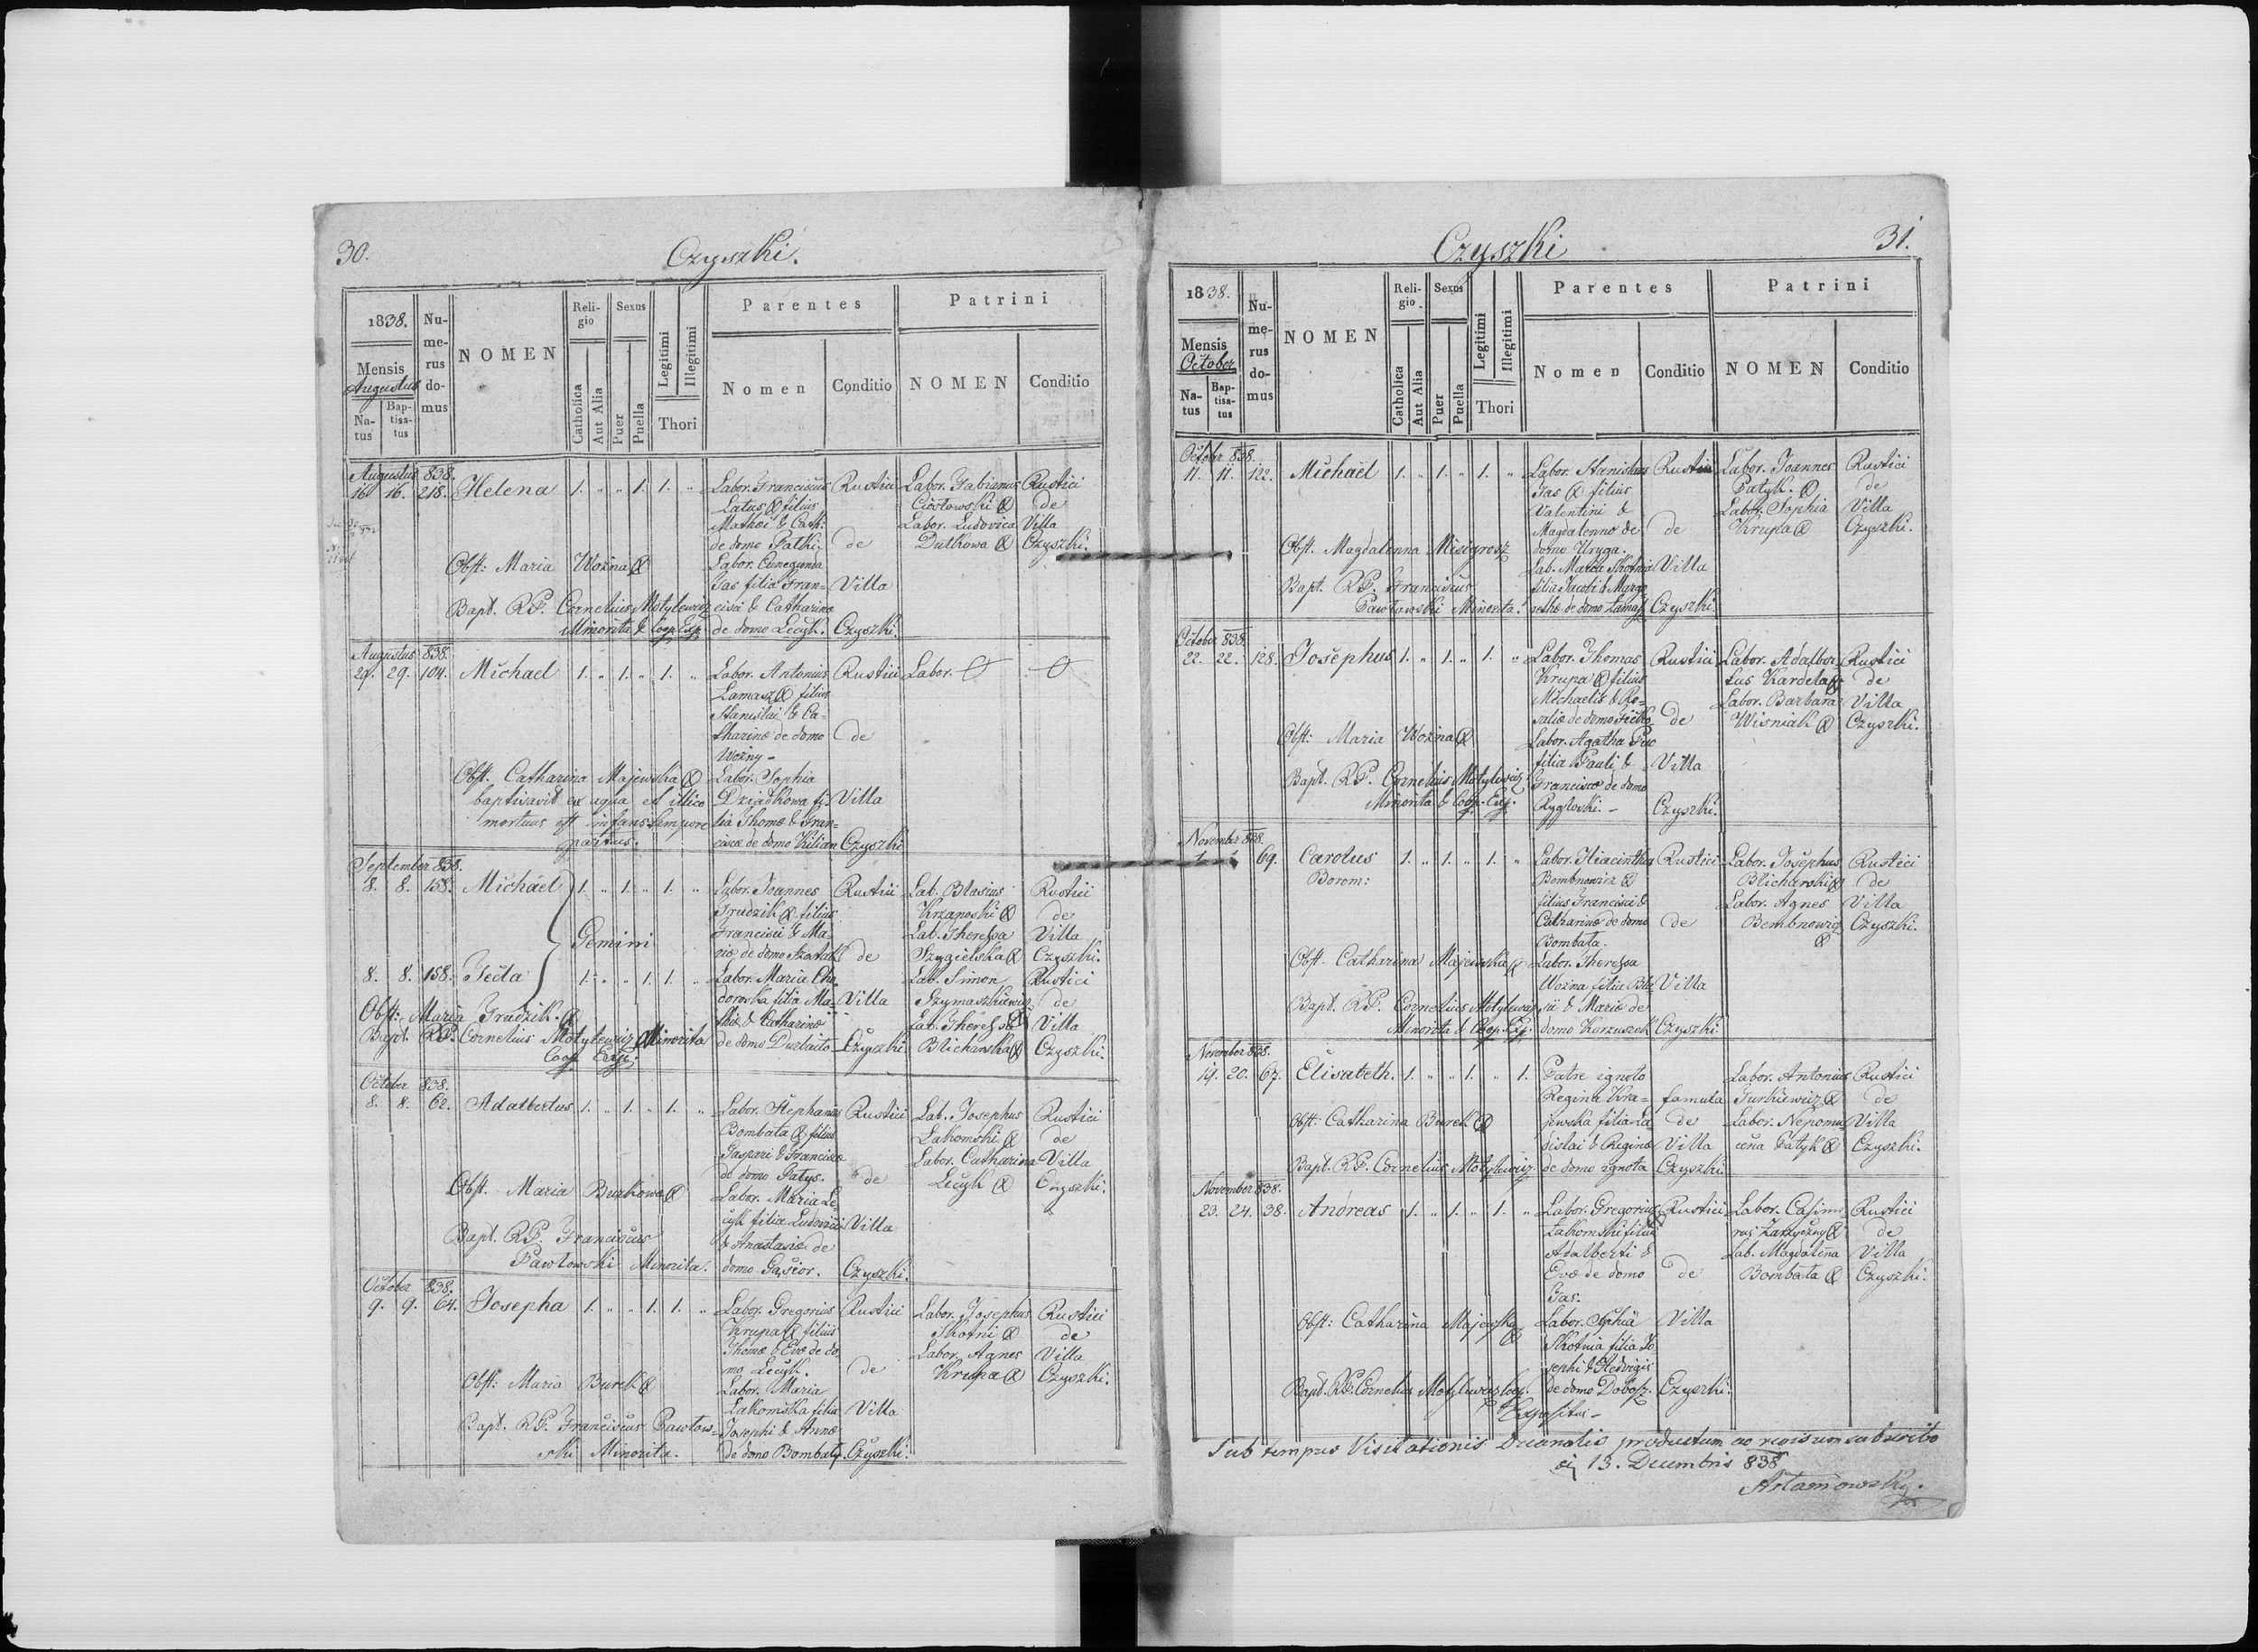 30.
Czyszki.
1838.
Mensis
Augustus
Natus
Baptisatus
Numerus domus
NOMEN
Religio
Catholica
Aut Alia
Sexus
Puer
Puella
Legitimi
Illegitimi
Thori
Parentes
Nomen
Conditio
Patrini
NOMEN
Conditio
Augustus 838.
16. 16. 218. Helena 1. „ „ 1. 1. „ Labor. Franciscus Rustici Labor. Fabianus Rustici
Latus filius Ciołowski de
Mathei & Cath: Labor. Ludovica Villa
de domo Patki. de Dutkowa Czyszki.
Obst: Maria Woźna Labor. Cunegunda
Gas filia Fran- Villa
Bapt. RP. Cornelius Motylewicz cisci & Catharina
Minorita & Coop. Exp. de domo Lecyk. Czyszki.
Augustus 838.
29. 29. 104. Michael 1. „ 1. „ 1. „ Labor. Antonius Rustici Labor.
Lamasz filius
Stanislai & Ca-
tharinæ de domo de
Woźny -
Obst. Catharina Majewska Labor. Sophia
baptisavit ex aqua et illico Dziadkowa fi- Villa
mortuus est infans tempore lia Thomæ & Fran-
partus. ciscæ de domo Kilian Czyszki
September 838.
8. 8. 158. Michael 1. „ 1. „ 1. „ Labor. Joannes Rustici Lab. Blasius Rustici
Grudzik filius Krzanoski de
Francisci & Ma- Lab. Theressa Villa
Gemini
riæ de domo de Szczgielska Czyszki.
8. 8. 158. Tecla 1. „ „ 1. 1. „ Labor. Maria Cha- Lab. Simon Rustici
dorowska filia Ma- Villa Szymaszkiewicz de
Obst: Maria Grudzik. thiæ & Catharinæ Lab. Theressa Villa
Bapt. RP. Cornelius Motylewicz Minorita de domo Czyszki Blicharska Czyszki.
Coop. Exp.
October 838.
8. 8. 62. Adalbertus 1. „ 1. „ 1. „ Labor. Stephanus Rustici Lab. Josephus Rustici
Bombata filius Lakomski de
Gaspari & Franciscæ Labor. Catharina Villa
de domo Patys. de Lecyk Czyszki.
Obst. Maria Burkowa Labor. Maria Le-
cyk filia Ludovici Villa
Bapt. RP. Franciscus & Anastasiæ de
Pawłowski Minorita. domo Gąsior. Czyszki.
October 838.
9. 9. 64. Josepha 1. „ „ 1. 1. „ Labor. Gregorius Rustici Labor. Josephus Rustici
Krupa filius Skotni de
Thomæ & Evæ de do- Labor. Agnes Villa
mo Lecyk. de Krupa Czyszki.
Obst: Maria Burek Labor. Maria
Lakomska filia Villa
Bapt. RP. Franciscus Pawłow- Josephi & Annæ
ski Minorita. de domo Bombaty Czyszki.
Czyszki
31.
1838.
Mensis
October
Natus
Baptisatus
Numerus domus
NOMEN
Religio
Catholica
Aut Alia
Sexus
Puer
Puella
Legitimi
Illegitimi
Thori
Parentes
Nomen
Conditio
Patrini
NOMEN
Conditio
October 838.
11. 11. 122. Michaël 1. „ 1. „ 1. „ Labor. Stanislaus Rustici Labor. Joannes Rustici
Gas filius Patyk. de
Valentini & Labor. Sophia Villa
Magdalenno de de Krupa Czyszki.
Obst. Magdalenna Misigrosz domo Uryga.
Lab. Maria Skotnia Villa
Bapt. RP. Franciscus filia Jacobi & Marga-
Pawłowski Minorita. rethæ de domo Lamasz Czyszki.
October 838.
22. 22. 128. Josephus 1. „ 1. „ 1. „ Labor. Thomas Rustici Labor. Adalber- Rustici
Krupa filius tus Kardela de
Michaelis & Ro- Labor. Barbara Villa
saliæ de domo de Wisniak Czyszki.
Obst: Maria Woźna Labor. Agatha
filia Pauli & Villa
Bapt. RP. Cornelius Motylewicz Franciscæ de domo
Minorita & Coop. Exp. Rygłoski. - Czyszki.
November 838.
1. 1. 69. Carolus 1. „ 1. „ 1. „ Labor. Hiacinthus Rustici Labor. Josephus Rustici
Borom: Bembnowicz Blicharski de
filius Francisci & Labor. Agnes Villa
Catharinæ de domo de Bembnowicz Czyszki.
Bombata.
Obst. Catharina Majewska Labor. Theressa
Woźna filia Bla- Villa
Bapt. RP. Cornelius Motylewicz sii & Mariæ de
Minorita & Coop. Exp. domo Korzuszek Czyszki
November 838.
19. 20. 67. Elisabeth. 1. „ „ 1. „ 1. Patre ignoto Labor. Antonius Rustici
Regina Kra- famula Turkiewicz de
Obst: Catharina Burek jewska filia La- de Labor. Nepomu- Villa
dislai & Reginæ Villa cena Patyk Czyszki.
Bapt. RP. Cornelius Motylewicz de domo ignota Czyszki
November 838.
23. 24. 38. Andreas 1. „ 1. „ 1. „ Labor. Gregorius Rustici Labor. Casimi- Rustici
Lakomski filius rus Zarzyczny de
Adalberti & Lab. Magdalena Villa
Evæ de domo de Bombata Czyszki.
Gas.
Obst: Catharina Majewska Labor. Sophia Villa
Skotnia filia Jo-
sephi & Hedvigis
Bapt. RP. Cornelius Motylewicz Coop. de domo Dobosz. Czyszki.
& Expositus -
Sub tempus Visitationis Decanalis productum ac revisum subscribo
13. Decembris 838
Artamowski.